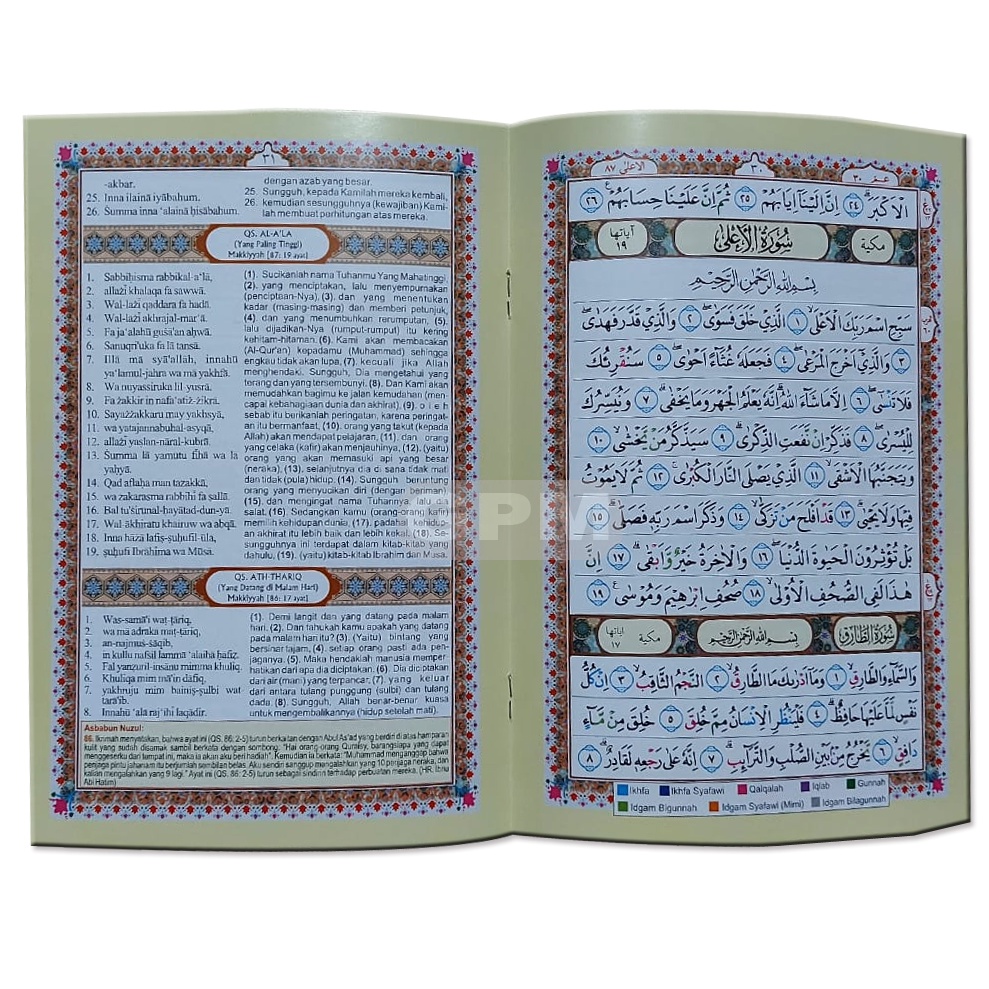 ٣١
-akbar.
25. Inna ilainā iyābahum.
26. Ṡumma inna ‘alainā ḥisābahum.
dengan azab yang besar.
25. Sungguh, kepada Kamilah mereka kembali,
26. kemudian sesungguhnya (kewajiban) Kami-
lah membuat perhitungan atas mereka.
QS. AL-A'LA
(Yang Paling Tinggi)
Makkiyyah [87: 19 ayat]
1. Sabbiḥisma rabbikal-a‘lā,
2. allażī khalaqa fa sawwā.
3. Wal-lażī qaddara fa hadā.
4. Wal-lażī akhrajal-mar‘ā.
5. Fa ja‘alahū guṡā'an aḥwā.
6. Sanuqri'uka fa lā tansā.
7. Illā mā syā'allāh, innahū
ya‘lamul-jahra wa mā yakhfā.
8. Wa nuyassiruka lil-yusrā.
9. Fa żakkir in nafa‘atiż-żikrā.
10. Sayażżakkaru may yakhsyā,
11. wa yatajannabuhal-asyqā,
12. allażī yaslan-nāral-kubrā.
13. Ṡumma lā yamūtu fīhā wa lā
yaḥyā.
14. Qad aflaḥa man tazakkā,
15. wa żakarasma rabbihī fa ṣallā.
16. Bal tu'ṡirunal-ḥayātad-dun-yā.
17. Wal-ākhiratu khairuw wa abqā.
18. Inna hāżā lafiṣ-ṣuḥufil-ūla,
19. ṣuḥufi Ibrāhīma wa Mūsā.
(1). Sucikanlah nama Tuhanmu Yang Mahatinggi,
(2). yang menciptakan, lalu menyempurnakan
(penciptaan-Nya), (3). dan yang menentukan
kadar (masing-masing) dan memberi petunjuk,
(4). dan yang menumbuhkan rerumputan, (5).
lalu dijadikan-Nya (rumput-rumput) itu kering
kehitam-hitaman. (6). Kami akan membacakan
(Al-Qur'an) kepadamu (Muhammad) sehingga
engkau tidak akan lupa, (7). kecuali jika Allah
menghendaki. Sungguh, Dia mengetahui yang
terang dan yang tersembunyi. (8). Dan Kami akan
memudahkan bagimu ke jalan kemudahan (men-
capai kebahagiaan dunia dan akhirat), (9). oleh
sebab itu berikanlah peringatan, karena peringat-
an itu bermanfaat, (10). orang yang takut (kepada
Allah) akan mendapat pelajaran, (11). dan orang
yang celaka (kafir) akan menjauhinya, (12). (yaitu)
orang yang akan memasuki api yang besar
(neraka), (13). selanjutnya dia di sana tidak mati
dan tidak (pula) hidup. (14). Sungguh beruntung
orang yang menyucikan diri (dengan beriman),
(15). dan mengingat nama Tuhannya, lalu dia
salat. (16). Sedangkan kamu (orang-orang kafir)
memilih kehidupan dunia, (17). padahal kehidup-
an akhirat itu lebih baik dan lebih kekal. (18). Se-
sungguhnya ini terdapat dalam kitab-kitab yang
dahulu, (19). (yaitu) kitab-kitab Ibrahim dan Musa.
QS. ATH-THARIQ
(Yang Datang di Malam Hari)
Makkiyyah [86: 17 ayat]
1. Was-samā'i waṭ-ṭāriq,
2. wa mā adrāka maṭ-ṭāriq,
3. an-najmuṡ-ṡāqib,
4. in kullu nafsil lammā ‘alaihā ḥafiẓ.
5. Fal yanẓuril-insānu mimma khuliq.
6. Khuliqa mim mā'in dāfiq,
7. yakhruju mim bainiṣ-ṣulbi wat-
tarā'ib.
8. Innahū ‘alā raj‘ihī laqādir.
(1). Demi langit dan yang datang pada malam
hari. (2). Dan tahukah kamu apakah yang datang
pada malam hari itu? (3). (Yaitu) bintang yang
bersinar tajam, (4). setiap orang pasti ada pen-
jaganya. (5). Maka hendaklah manusia memper-
hatikan dari apa dia diciptakan. (6). Dia diciptakan
dari air (mani) yang terpancar, (7). yang keluar
dari antara tulang punggung (sulbi) dan tulang
dada. (8). Sungguh, Allah benar-benar kuasa
untuk mengembalikannya (hidup setelah mati).
Asbabun Nuzul:
86. Ikrimah menyatakan, bahwa ayat ini (QS. 86: 2-5) turun berkaitan dengan Abul As'ad yang berdiri di atas hamparan
kulit yang sudah disamak sambil berkata dengan sombong: "Hai orang-orang Quraisy, barangsiapa yang dapat
menggeserku dari tempat ini, maka ia akan aku beri hadiah". Kemudian ia berkata: "Muhammad menganggap bahwa
penjaga pintu jahanam itu berjumlah sembilan belas. Aku sendiri sanggup mengalahkan yang 10 penjaga neraka, dan
kalian mengalahkan yang 9 lagi." Ayat ini (QS. 86: 2-5) turun sebagai sindiran terhadap perbuatan mereka. (HR. Ibnu
Abi Hatim)
الاعلى ٨٧
٣٠
عم ٣٠
الْاَكْبَرَۗ ٢٤ اِنَّ اِلَيْنَآ اِيَابَهُمْ ٢٥ ثُمَّ اِنَّ عَلَيْنَا حِسَابَهُمْ ٢٦
مكية
سُوْرَةُ الْاَعْلٰى
اٰياتها ١٩
بِسْمِ اللّٰهِ الرَّحْمٰنِ الرَّحِيْمِ
سَبِّحِ اسْمَ رَبِّكَ الْاَعْلَىۙ ١ الَّذِيْ خَلَقَ فَسَوّٰىۖ ٢ وَالَّذِيْ قَدَّرَ فَهَدٰىۖ
٣ وَالَّذِيْٓ اَخْرَجَ الْمَرْعٰىۖ ٤ فَجَعَلَهٗ غُثَاۤءً اَحْوٰىۖ ٥ سَنُقْرِئُكَ
فَلَا تَنْسٰىٓۖ ٦ اِلَّا مَا شَاۤءَ اللّٰهُ ۗاِنَّهٗ يَعْلَمُ الْجَهْرَ وَمَا يَخْفٰىۗ ٧ وَنُيَسِّرُكَ
لِلْيُسْرٰىۖ ٨ فَذَكِّرْ اِنْ نَّفَعَتِ الذِّكْرٰىۗ ٩ سَيَذَّكَّرُ مَنْ يَّخْشٰىۙ ١٠
وَيَتَجَنَّبُهَا الْاَشْقَىۙ ١١ الَّذِيْ يَصْلَى النَّارَ الْكُبْرٰىۚ ١٢ ثُمَّ لَا يَمُوْتُ
فِيْهَا وَلَا يَحْيٰىۗ ١٣ قَدْ اَفْلَحَ مَنْ تَزَكّٰىۙ ١٤ وَذَكَرَ اسْمَ رَبِّهٖ فَصَلّٰىۗ ١٥
بَلْ تُؤْثِرُوْنَ الْحَيٰوةَ الدُّنْيَاۖ ١٦ وَالْاٰخِرَةُ خَيْرٌ وَّاَبْقٰىۗ ١٧ اِنَّ
هٰذَا لَفِى الصُّحُفِ الْاُوْلٰىۙ ١٨ صُحُفِ اِبْرٰهِيْمَ وَمُوْسٰى ١٩
سُوْرَةُ الطَّارِقِ
بِسْمِ اللّٰهِ الرَّحْمٰنِ الرَّحِيْمِ
مكية
اٰياتها ١٧
وَالسَّمَاۤءِ وَالطَّارِقِۙ ١ وَمَآ اَدْرٰىكَ مَا الطَّارِقُۙ ٢ النَّجْمُ الثَّاقِبُۙ ٣ اِنْ كُلُّ
نَفْسٍ لَّمَّا عَلَيْهَا حَافِظٌۗ ٤ فَلْيَنْظُرِ الْاِنْسَانُ مِمَّ خُلِقَ ٥ خُلِقَ مِنْ مَّاۤءٍ
دَافِقٍۙ ٦ يَّخْرُجُ مِنْۢ بَيْنِ الصُّلْبِ وَالتَّرَاۤىِٕبِۗ ٧ اِنَّهٗ عَلٰى رَجْعِهٖ لَقَادِرٌۗ ٨
Ikhfa Ikhfa Syafawi Qalqalah Iqlab Gunnah
Idgam Bigunnah Idgam Syafawi (Mimi) Idgam Bilagunnah
GPM